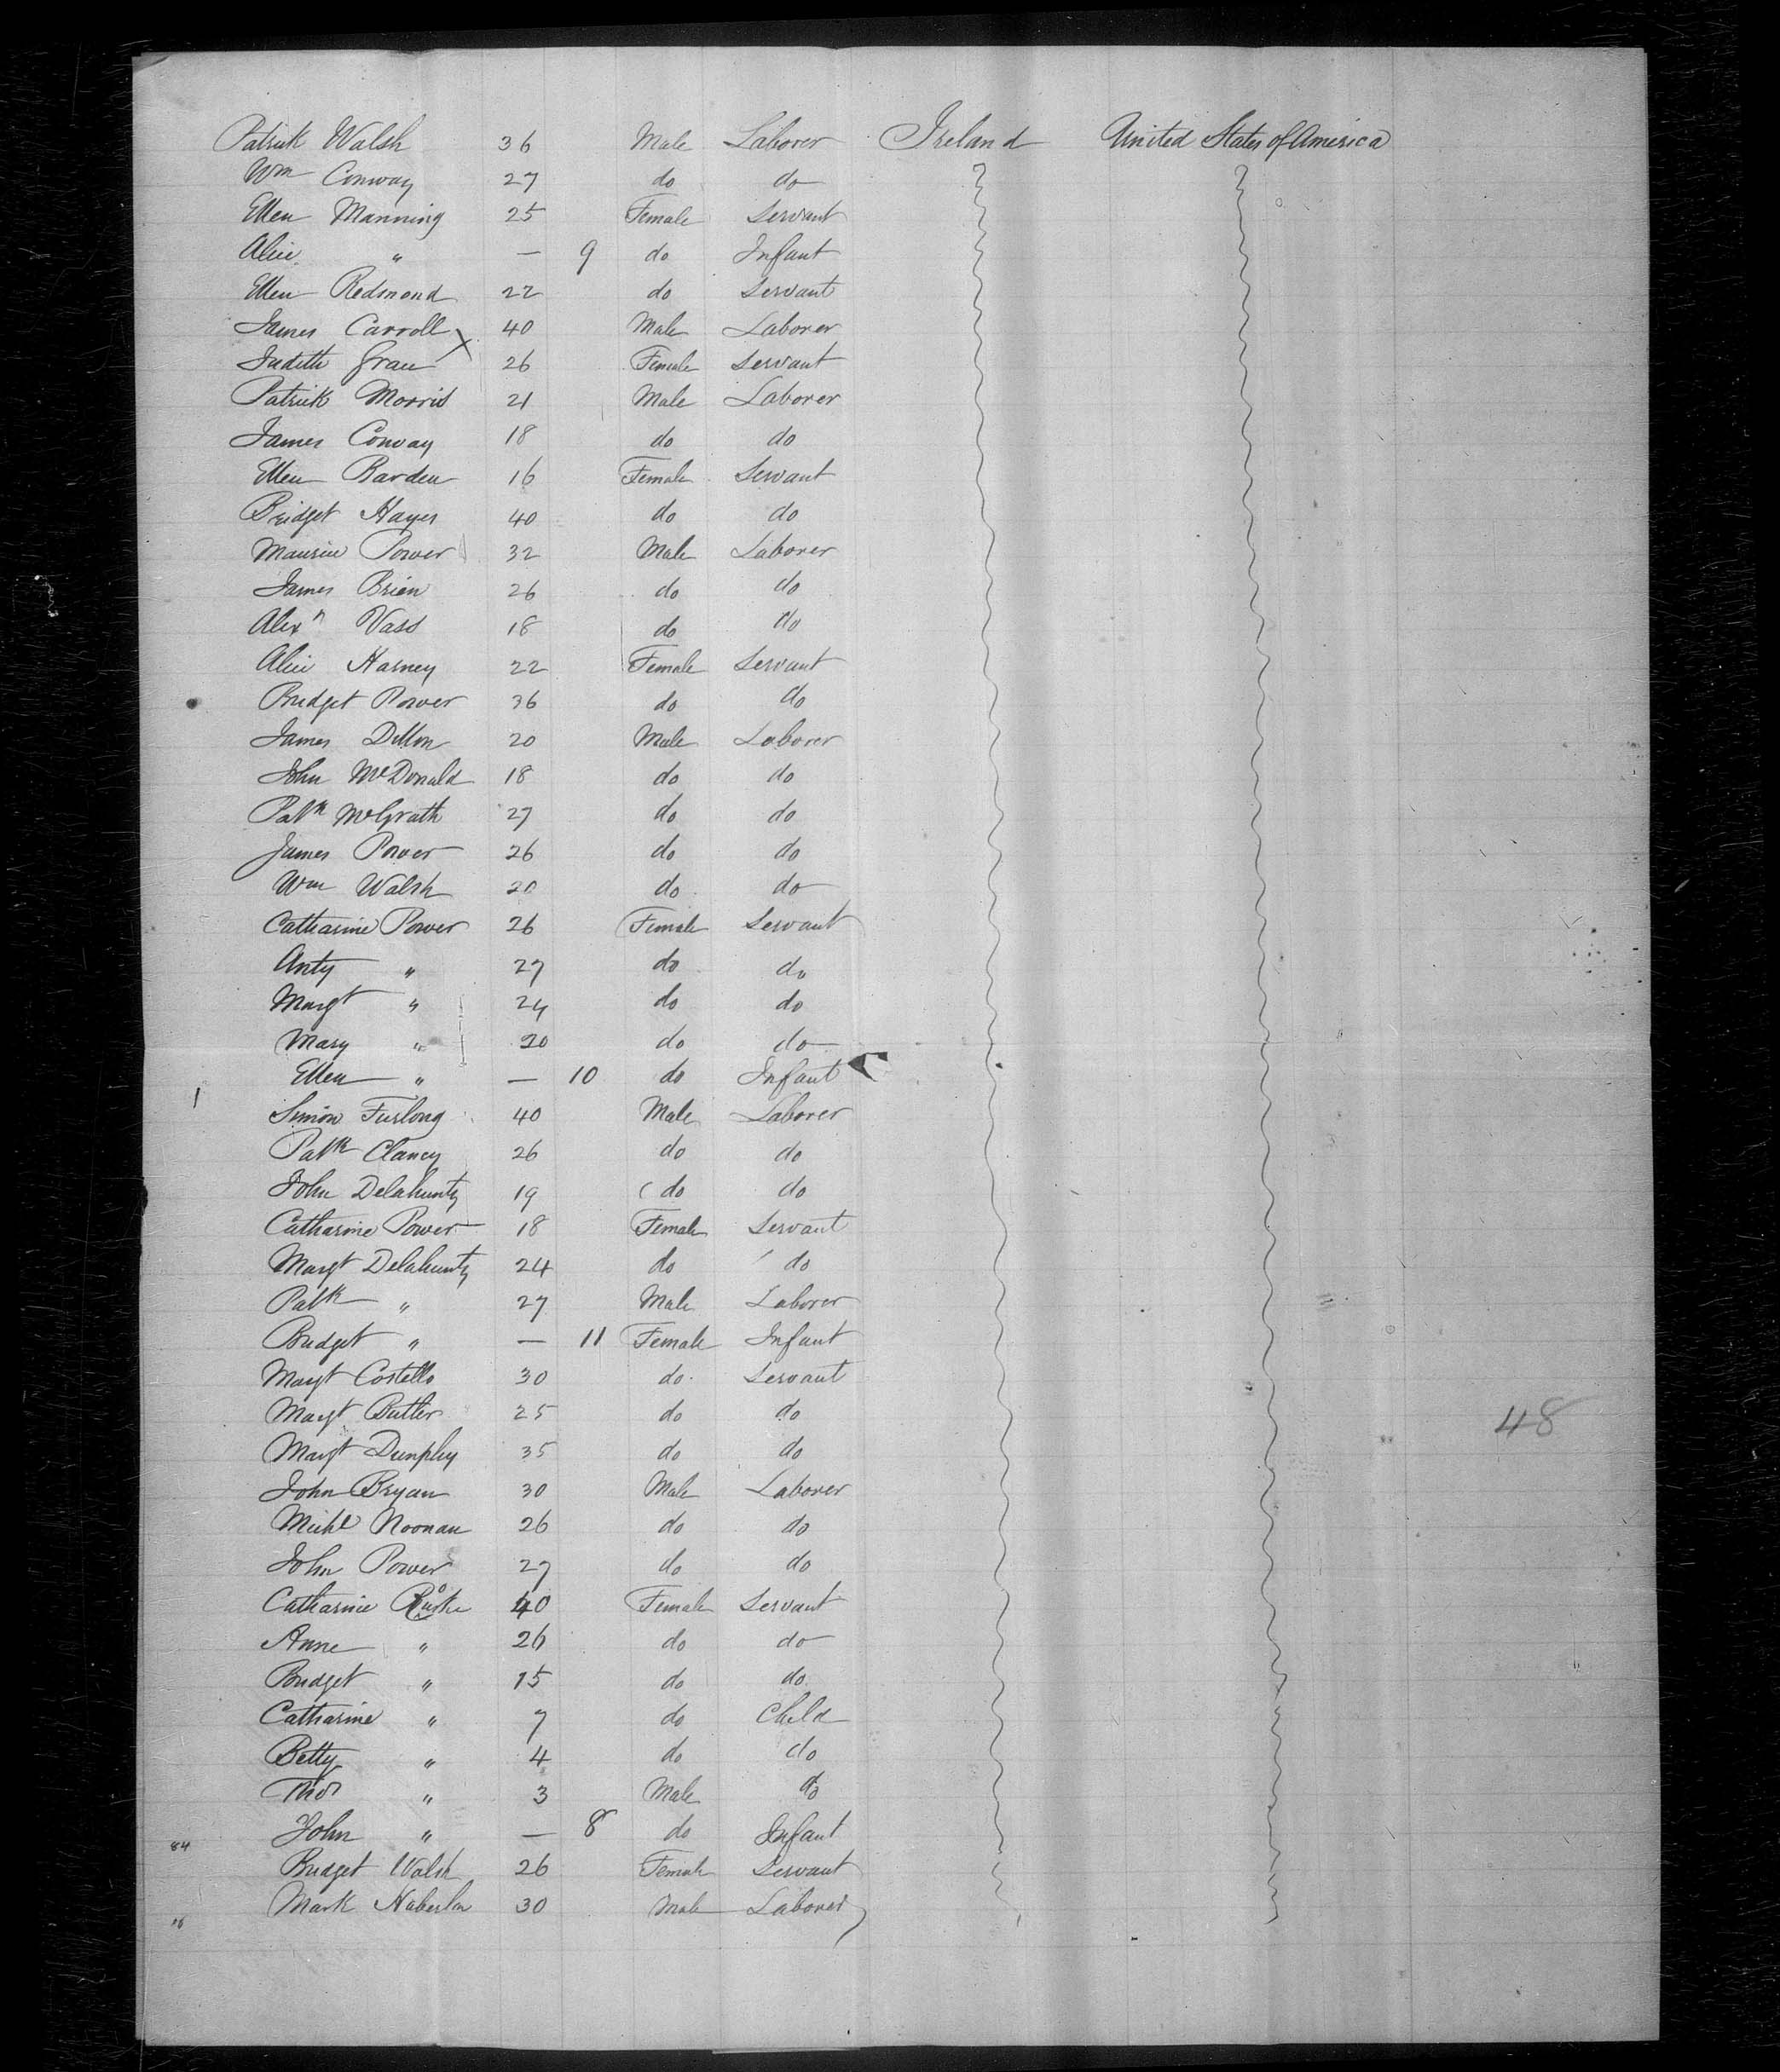 Patrick Walsh 36 Male Laborer Ireland United States of America
Wm Conway 27 do do
Ellen Manning 25 Female Servant
Alice " — 9 do Infant
Ellen Redmond 22 do Servant
James Carroll X 40 Male Laborer
Judith Grace 26 Female Servant
Patrick Morris 21 Male Laborer
James Conway 18 do do
Ellen Barden 16 Female Servant
Bridget Hayes 40 do do
Maurice Power 32 Male Laborer
James Brien 26 do do
Alexr Vass 18 do do
Alice Harney 22 Female Servant
Bridget Power 36 do do
James Dillon 20 Male Laborer
John McDonald 18 do do
Patk McGrath 27 do do
James Power 26 do do
Wm Walsh 20 do do
Catharine Power 26 Female Servant
Anty " 27 do do
Margt " 24 do do
Mary " 20 do do
Ellen " — 10 do Infant
Simon Furlong 40 Male Laborer
Patk Clancy 26 do do
John Delahunty 19 do do
Catharine Power 18 Female Servant
Margt Delahunty 24 do do
Patk " 27 Male Laborer
Bridget " — 11 Female Infant
Margt Costello 30 do Servant
Margt Butler 25 do do
48
Margt Dunphy 35 do do
John Bryan 30 Male Laborer
Michl Noonan 26 do do
John Power 27 do do
Catharine 40 Female Servant
Anne " 26 do do
Bridget " 15 do do
Catharine " 7 do Child
Betty " 4 do do
Thos " 3 Male do
John " — 8 do Infant
84
Bridget Walsh 26 Female Servant
Mark Haberlin 30 Male Laborer